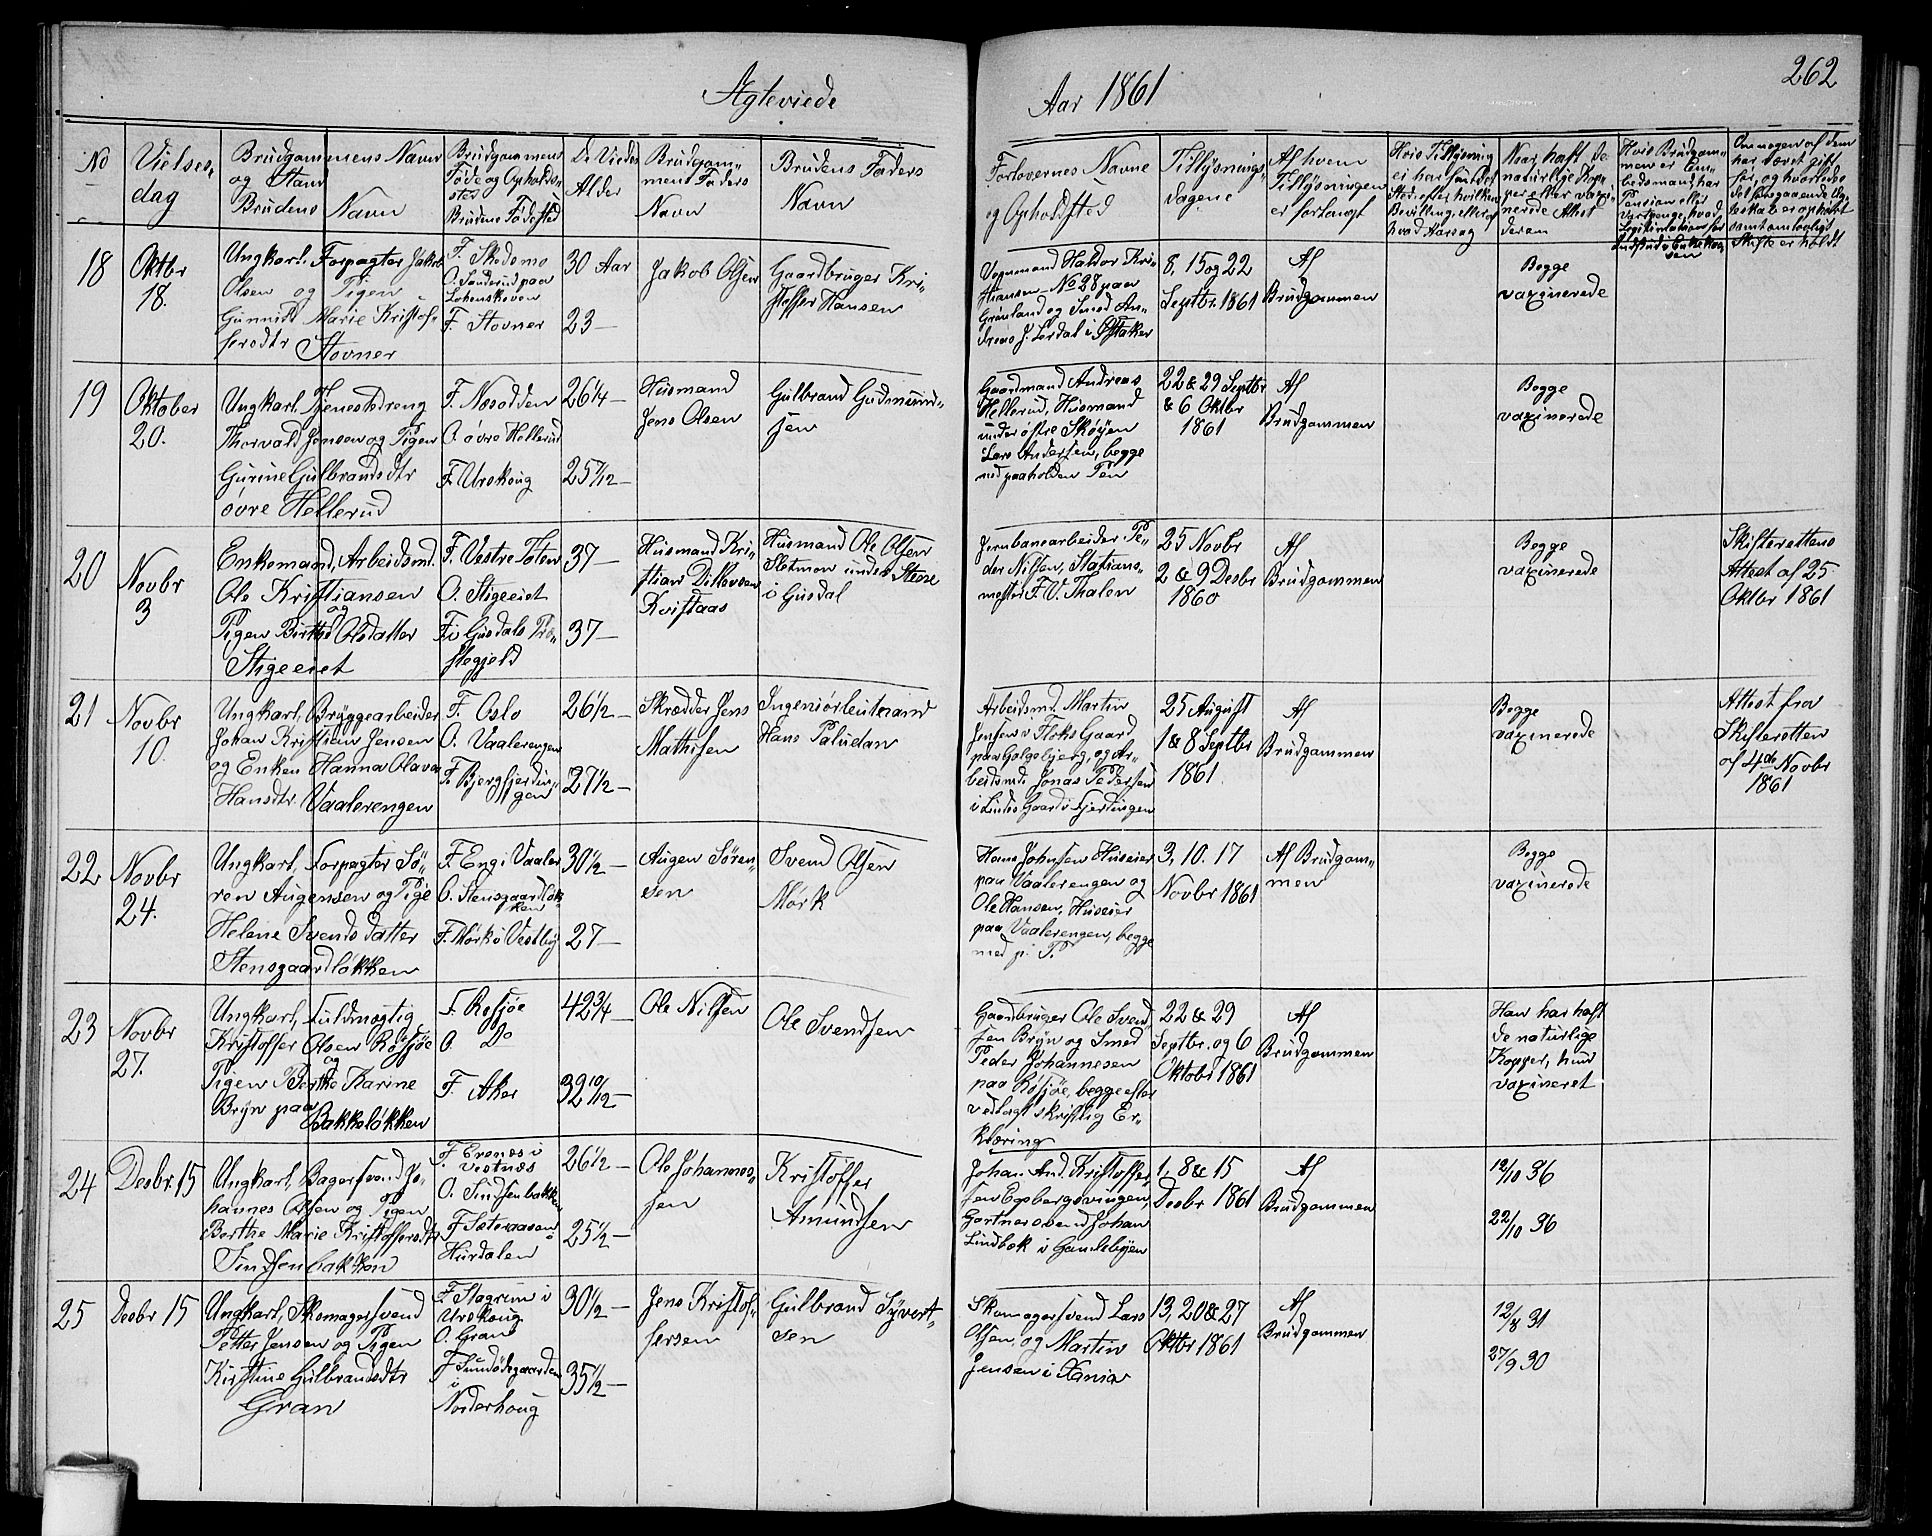 Ægteviede
Aar 1861
262
No
Vielses-
dag
Brudgommens Navn
og Stand
Brudens Navn
Brudgommens
Føde og Opholds-
sted
Brudens Fødested
De Viedes
Alder
Brudgom-
mens Faders
Navn
Brudens Faders
Navn
Forlovernes Navne
og Opholdsted
Tillysnings-
dagene
Af hvem
Tillysningen
er forlangt
Hvis Tillysning
ei har fundet
Sted, efter hvilken
Bevilling, eller af
hvad Aarsag
Naar haft de
naturlige Kop-
per eller vaxi-
nerede Attest
derom
Hvis Brudgom-
men er Em-
bedsmand, har
Pension eller
Vartpenge, hvad
Legitimation for
Indskud i Enkekas-
sen
Om nogen af dem
har været gift
før, og hvorledes
det foregaaende Æg-
teskab er ophævet
samt om lovligt
Skifte er holdt
18
Oktbr
18.
Ungkarl. Forpagter Jakob
Olsen og Pigen
Gunnild Marie Kristof-
fersdtr Stovner
F. Skedsmo
O. Sanderud paa
Lahauskoven
F. Stovner
30 Aar
23 —
Jakob Olsen
Gaardbruger Kri-
stoffer Hansen
Vognmand Haldor Kri-
stiansen No 28 paa
Grønland og Smed An-
dreas J. Lørdal i Ø. Aker
8, 15 og 22
Septbr. 1861
Af
Brudgommen
Begge
vaxinerede
19
Oktober
20.
Ungkarl, Tjenestedreng
Thorvald Jensen og Pigen
Gurine Gulbrandsdtr
øvre Hellerud
F. Næsodden
O. øvre Hellerud
F. Urskoug
26 1/4 —
25 7/12 —
Husmand
Jens Olsen
Gulbrand Gudmund-
sen
Gaardmand Andreas
Hellerud, Husmand
under østre Skøyen
Lars Andersen, begge
med paaholden Pen
22 & 29 Septbr
& 6 Oktbr
1861
Af
Brudgommen
Begge
vaxinerede
20
Novbr
3
Enkemand, Arbeidsmd.
Ole Kristiansen
og
Pigen Birthe Olsdatter
Stigeeiet
F. Vestre Toten
O. Stigeeiet
F. i Gusdals Præ-
stegjeld
37 —
37 —
Husmand Kri-
stian Ditlevsen
Kvistaas
Husmand Ole Olsen
Slotmon under Stene
i Gusdal
Jernbanearbeider Pe-
der Nilsen, Stations-
mester F. V. Thalen
25 Novbr
2 & 9 Desbr
1860
Af
Brudgommen
Begge
vaxinerede
Skifterettens
Attest af 25
Oktbr 1861
21
Novbr
10.
Ungkarl, Bryggearbeider
Johan Kristian Jensen
og Enken Hanna Olava
Hansdtr. Vaalerengen
F. Oslo
O. Vaalerengen
F. Bjergfjerdin-
gen
26 1/2 —
27 1/2 —
Skrædder Jens
Mathisen
Ingeniørleutenand
Hans Paludan
Arbeidsmd. Martin
Jensen i Floks Gaard
paa Galgebjerg, og Ar-
beidsmd. Jonas Pedersen
i Lindes Gaard i Fjerdingen
25 August
1 & 8 Septbr
1861.
Af
Brudgommen
Begge
vaxinerede
Attest fra
Skifteretten
af 4de Novbr
1861
22
Novbr
24.
Ungkarl, Forpagter Sø-
ren Augensen og Pige
Helene Svendsdatter
Stensgaardløkken
F. Eng i Vaaler
O. Stensgaardløk-
ken
F. Mørk i Vestby
30 1/2 —
27 —
Augen Søren-
sen
Svend Olsen
Mørk
Hans Johnsen Huseier
paa Vaalerengen og
Ole Hansen, Huseier
paa Vaalerengen, begge
med p. P.
3, 10. 17
Novbr 1861
Af Brudgom-
men
Begge
vaxinerede
23
Novbr
27.
Ungkarl, Fuldmægtig
Kristoffer Olsen Røssjøe
og
Pigen Berthe Karine
Bryn paa
Bakkeløkken
F. Røsjøe
O. Do
F. Aker
42 3/4 —
39 10/12 —
Ole Nilsen
Ole Svendsen
Gaardbruger Ole Svend-
sen Bryn og Smed
Peder Johannesen
paa Røsjøe, begge efter
vedlagt skriftlig Er-
klæring
22 & 29
Septbr. og 6
Oktobr 1861
Af
Brudgommen
Han har haft
de naturlige
Kopper, hun
vaxineret
24
Desbr. 15
Ungkarl, Bagersvend Jo-
hannes Olsen og Pigen
Berthe Marie Kristoffersdtr
Sindsenbakken
F. Erenæs i
Vestnæs
O. Sindsenbakken
F. Sæteraasen i
Hurdalen
26 1/2 —
25 1/2 —
Ole Johannes-
sen
Kristoffer
Amundsen
Johan And. Kristoffer-
sen Egebergsvingen,
Gartnersvend Johan
Lindbæk i Gamlebyen
1, 8 & 15
Desbr 1861
Af
Brudgommen
12/10 36
22/10 36
25
Desbr 15
Ungkarl, Skomagersvend
Petter Jensen og Pigen
Kirstine Gulbrandsdtr
Gran
F. Stagrum i
Urskoug
O. Gran
F. Sundødegaarden
i
Norderhoug
30 1/2 —
35 1/2 —
Jens Kristof-
fersen
Gulbrand Syvert-
sen
Skomagersvend Lars
Olsen, og Martin
Jensen i Xania
13, 20 & 27
Oktbr 1861
Af
Brudgommen
12/8 31
27/9 30